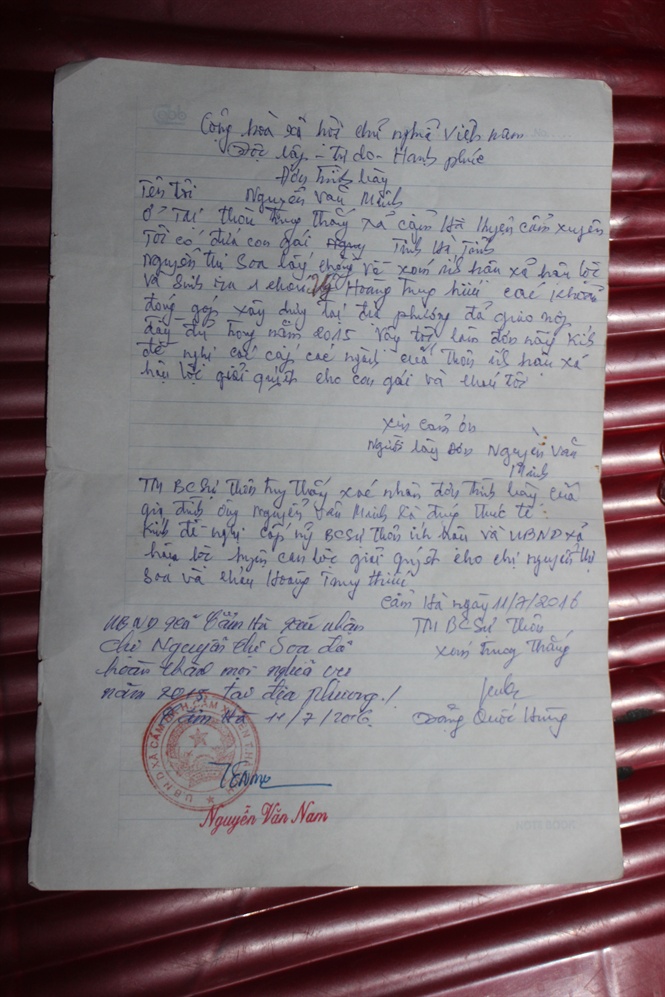 Cộng hòa xã hội chủ nghĩa Việt nam
Độc lập - tự do - Hạnh phúc
Đơn trình bày
Tên tôi Nguyễn Văn Minh
ở Tại thôn Trung thắng xã cẩm Hà Huyện cẩm xuyên
Tôi có đứa con gái Tỉnh Hà Tĩnh
Nguyễn Thị Soa lấy chồng về xóm ích hậu xã hậu lộc
và sinh ra 1 cháu Hoàng Trung hiếu các khoản
đóng góp xây dựng tại địa phương đã giao nộp
đầy đủ trong năm 2015 Vậy tôi làm đơn này kính
đề nghị các cấp các ngành của thôn ích hậu xã
hậu lộc giải quyết cho con gái và cháu tôi
xin cảm ơn
Người làm đơn Nguyễn Văn
Minh
TM BCSự thôn Trung Thắng xác nhận đơn trình bày của
gia đình ông Nguyễn Văn Minh là đúng thực tế
Kính đề nghị BCSự thôn ích hậu và UBND xã
hậu lộc huyện can lộc giải quyết cho chị nguyễn thị
Soa và cháu Hoàng Trung hiếu
Cẩm Hà ngày 11/7/2016
UBND xã Cẩm Hà xác nhận
TM BCSự thôn
chị Nguyễn Thị Soa đã
xóm Trung Thắng
hoàn thành mọi nghĩa vụ
năm 2015 tại địa phương!
Cẩm Hà 11/7/2016
Quốc Hùng
U.B.N.D XÃ CẨM HÀ H. CẨM XUYÊN
Nguyễn Văn Nam